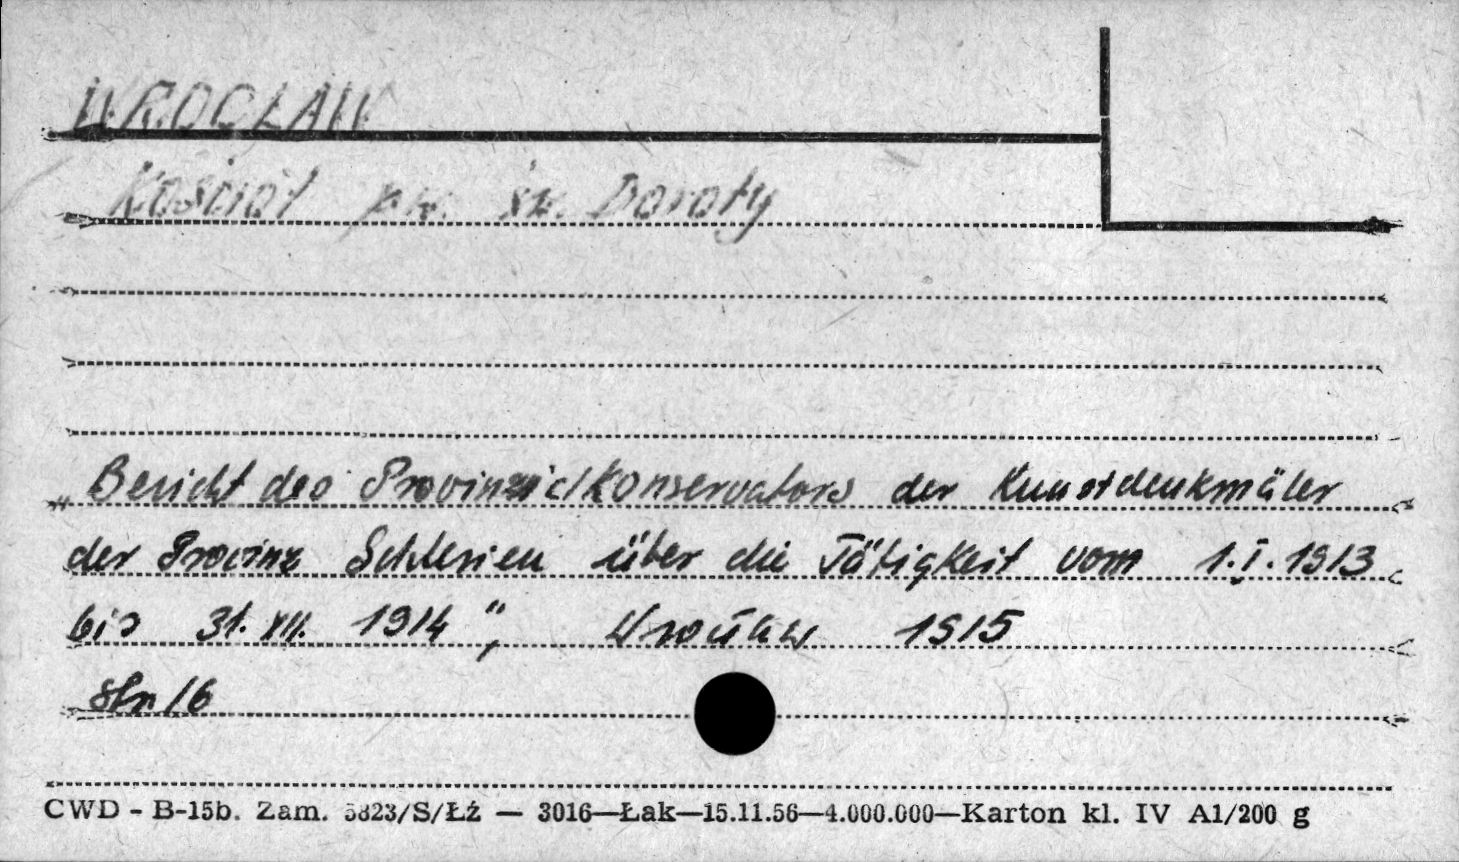 WROCŁAW
Kościół p.w. św. Doroty
„Bericht des Provinzialkonservators der Kunstdenkmäler
der Provinz Schlesien über die Tätigkeit vom 1.I.1913
bis 31.XII. 1914", Wrocław 1915
str 16
CWD - B-15b. Zam. 5823/S/Łź — 3016—Łak—15.11.56—4.000.000—Karton kl. IV A1/200 g